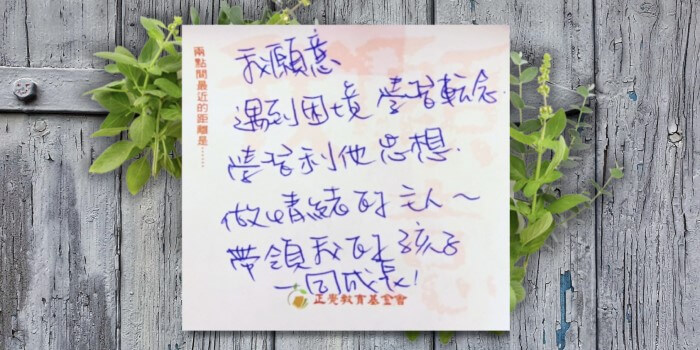 兩點間最近的距離是……
我願意
遇到困境 學習轉念.
學習利他思想.
做情緒的主人~
帶領我的孩子
一同成長!
正覺教育基金會